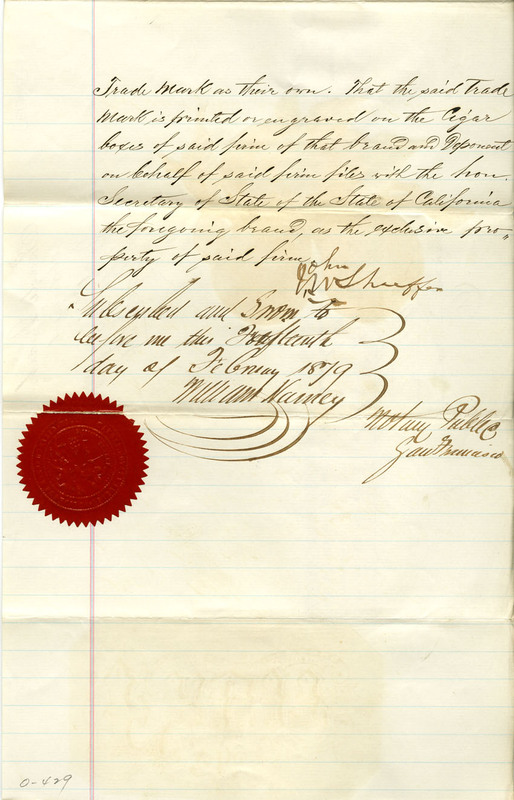 Trade Mark as their own. That the said Trade
Mark is printed or engraved on the Cigar
boxes of said firm of that brand and Deponent
on behalf of said firm files with the hon.
Secretary of State of the State of California
the foregoing brand, as the exclusive pro-
perty of said firm
John
Shaeffer
Subscribed and Sworn to
before me this
day of February 1879
William Harney
Notary Public
San Francisco
0-429